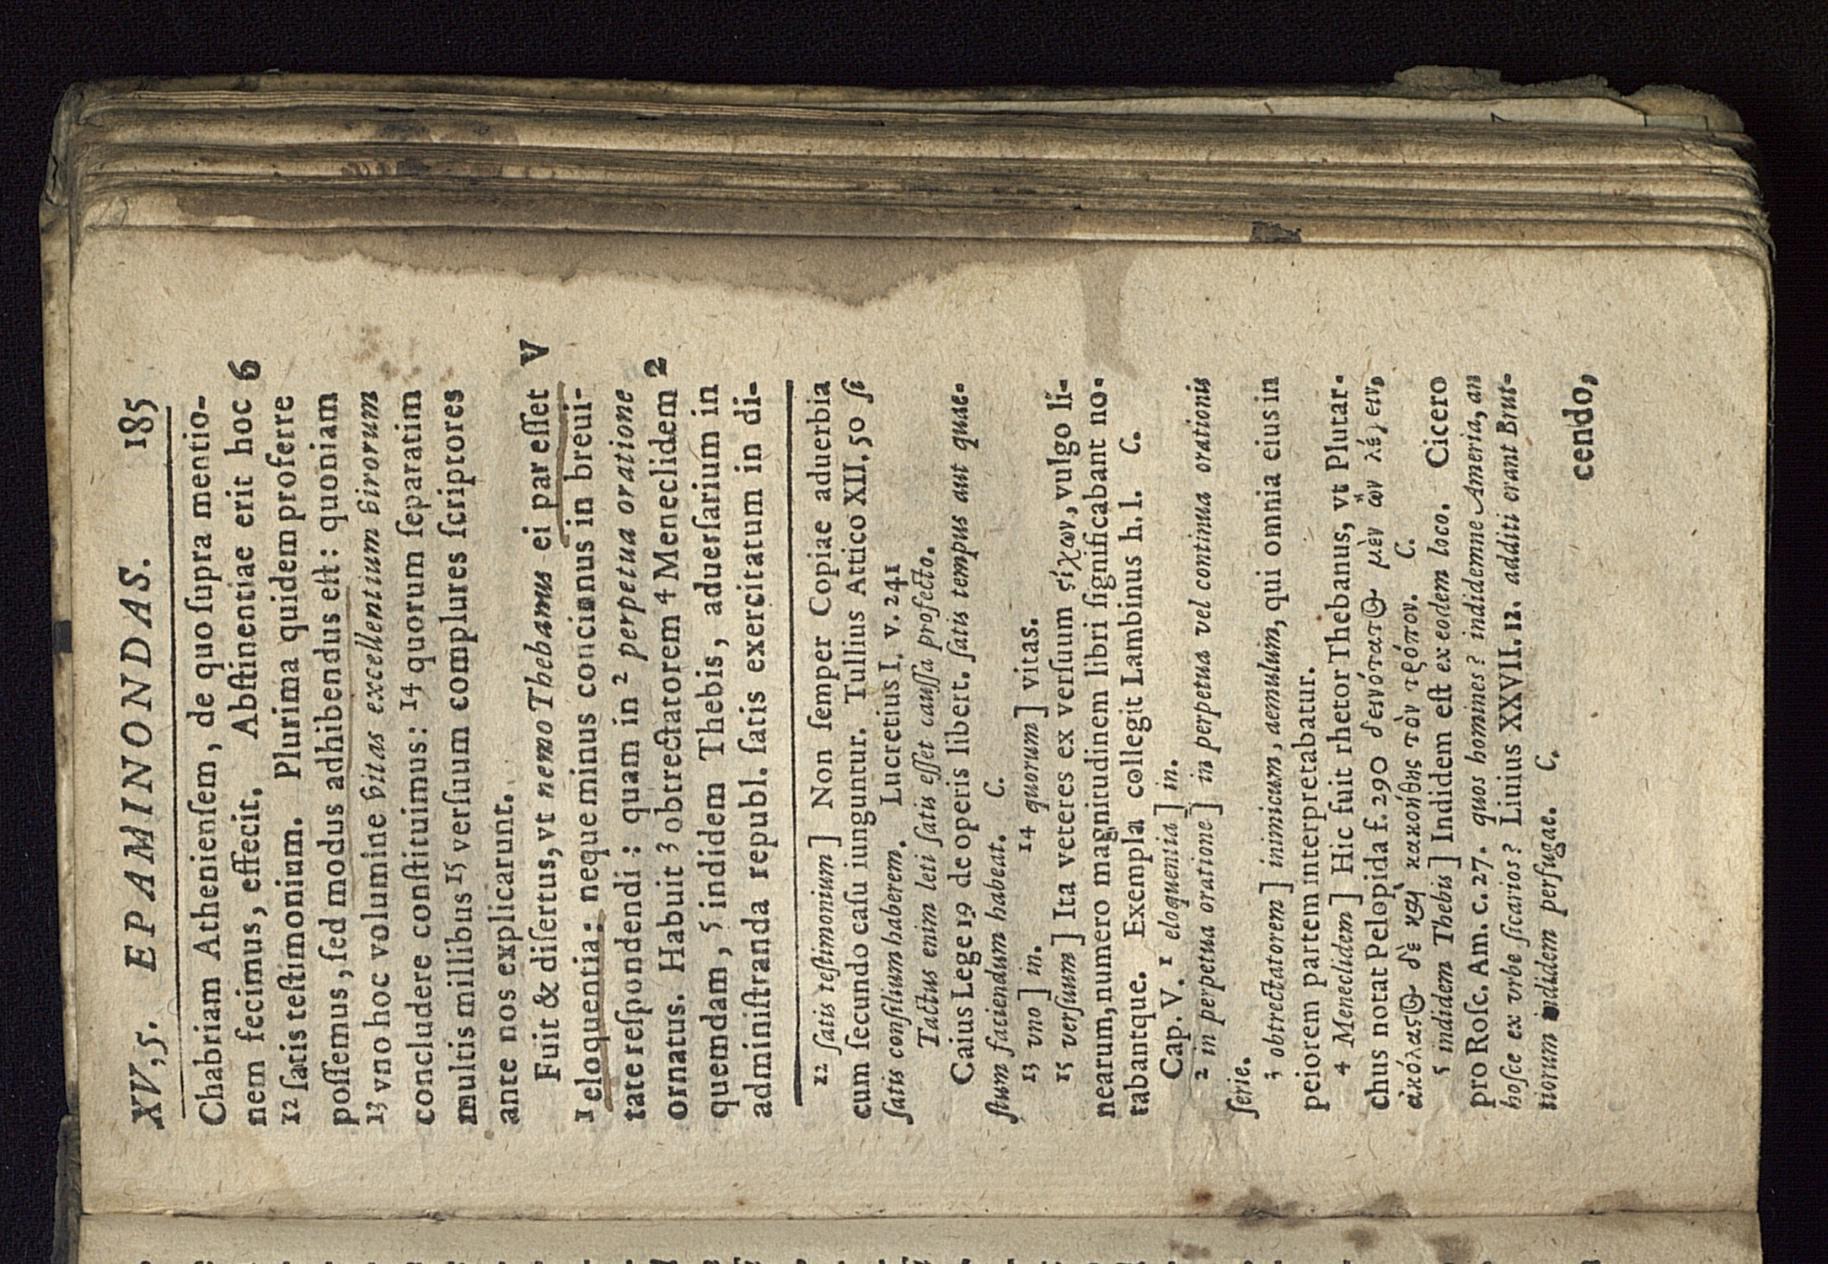 XV,5. EPAMINONDAS. 185
Chabriam Athenienſem, de quo ſupra mentio-
nem fecimus, effecit. Abſtinentiae erit hoc 6
12 ſatis teſtimonium. Plurima quidem proferre
poſſemus, ſed modus adhibendus eſt: quoniam
13 vno hoc volumine vitas excellentium virorum
concludere conſtituimus: 14 quorum ſeparatim
multis millibus 15 verſuum complures ſcriptores
ante nos explicarunt.
Fuit & diſertus, vt nemo Thebanus ei par eſſet V
1 eloquentia: neque minus concinnus in breui-
tate reſpondendi: quam in 2 perpetua oratione
ornatus. Habuit 3 obtrectatorem 4 Meneclidem 2
quemdam, 5 indidem Thebis, aduerſarium in
adminiſtranda republ. ſatis exercitatum in di-
12 ſatis teſtimonium] Non ſemper Copiae aduerbia
cum ſecundo caſu iunguntur. Tullius Attico XII, 50 ſi
ſatis conſilium haberem. Lucretius I. v. 241
Tactus enim leti ſatis eſſet cauſſa profecto.
Caius Lege 19 de operis libert. ſatis tempus aut quae-
ſtum faciendum habeat. C.
13 vno] in. 14 quorum] vitas.
15 verſuum] Ita veteres ex verſuum ςίχων, vulgo li-
nearum, numero magnitudinem libri ſignificabant no-
tabantque. Exempla collegit Lambinus h. l. C.
Cap. V. 1 eloquentia] in.
2 in perpetua oratione] in perpetua vel continua orationis
ſerie.
3 obtrectatorem] inimicum, aemulum, qui omnia eius in
peiorem partem interpretabatur.
4 Meneclidem] Hic fuit rhetor Thebanus, vt Plutar-
chus notat Pelopida f. 290 δεινότατος μὲν ὢν λέγειν,
ἀκόλαςος δὲ καὶ κακοήθης τὸν τρόπον. C.
5 indidem Thebis] Indidem eſt ex eodem loco. Cicero
pro Roſc. Am. c. 27. quos homines? indidemne Ameria, an
hoſce ex vrbe ſicarios? Liuius XXVII. 12. additi erant Brut-
tiorum indidem perfugae. C.
cendo,